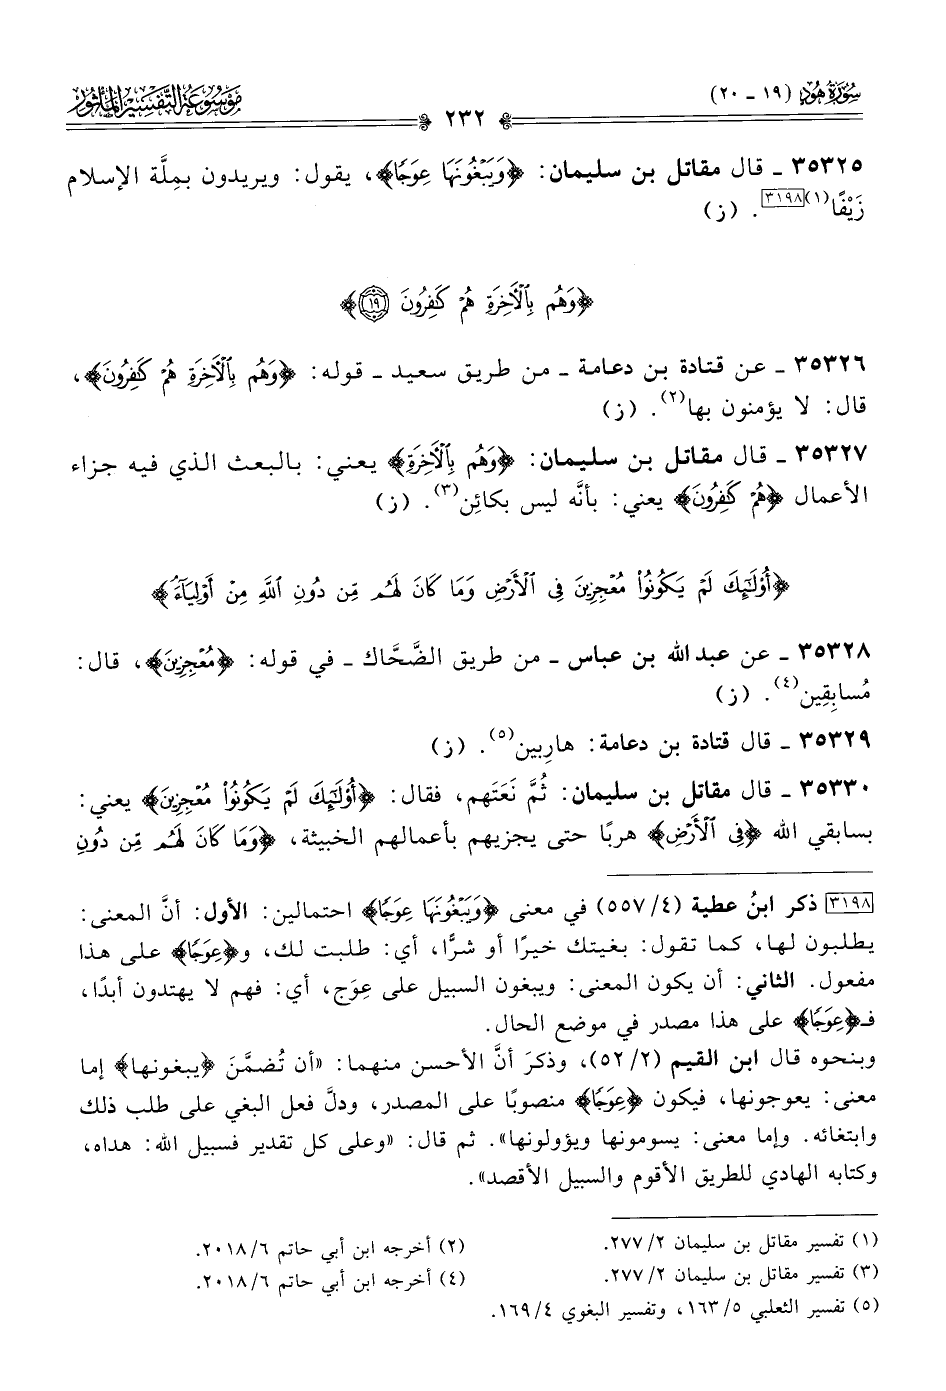 سورة هود (١٩ - ٢٠)
٢٣٢
موسوعة التفسير المأثور
٣٥٣٢٥ - قال مقاتل بن سليمان: ﴿وَيَبْغُونَهَا عِوَجًا﴾، يقول: ويريدون بمِلَّة الإسلام
زَيْفًا(١)[٣١٩٨]. (ز)
﴿وَهُم بِٱلْأَخِرَةِ هُمْ كَٰفِرُونَ ١٩﴾
٣٥٣٢٦ - عن قتادة بن دعامة - من طريق سعيد - قوله: ﴿وَهُم بِٱلْأَخِرَةِ هُمْ كَٰفِرُونَ﴾،
قال: لا يؤمنون بها(٢). (ز)
٣٥٣٢٧ - قال مقاتل بن سليمان: ﴿وَهُم بِٱلْأَخِرَةِ﴾ يعني: بالبعث الذي فيه جزاء
الأعمال ﴿هُمْ كَٰفِرُونَ﴾ يعني: بأنَّه ليس بكائِن(٣). (ز)
﴿أُوْلَٰٓئِكَ لَمْ يَكُونُوا۟ مُعْجِزِينَ فِى ٱلْأَرْضِ وَمَا كَانَ لَهُم مِّن دُونِ ٱللَّهِ مِنْ أَوْلِيَآءَ﴾
٣٥٣٢٨ - عن عبد الله بن عباس - من طريق الضَّحَّاك - في قوله: ﴿مُعْجِزِينَ﴾، قال:
مُسابِقِين(٤). (ز)
٣٥٣٢٩ - قال قتادة بن دعامة: هارِبين(٥). (ز)
٣٥٣٣٠ - قال مقاتل بن سليمان: ثُمَّ نَعَتَهم، فقال: ﴿أُوْلَٰٓئِكَ لَمْ يَكُونُوا۟ مُعْجِزِينَ﴾ يعني:
بسابقي الله ﴿فِى ٱلْأَرْضِ﴾ هربًا حتى يجزيهم بأعمالهم الخبيثة، ﴿وَمَا كَانَ لَهُم مِّن دُونِ
[٣١٩٨] ذكر ابنُ عطية (٤/ ٥٥٧) في معنى ﴿وَيَبْغُونَهَا عِوَجًا﴾ احتمالين: الأول: أنَّ المعنى:
يطلبون لها، كما تقول: بغيتك خيرًا أو شرًّا، أي: طلبت لك، و﴿عِوَجًا﴾ على هذا
مفعول. الثاني: أن يكون المعنى: ويبغون السبيل على عِوَج، أي: فهم لا يهتدون أبدًا،
فـ﴿عِوَجًا﴾ على هذا مصدر في موضع الحال.
وبنحوه قال ابن القيم (٢/ ٥٢)، وذكرَ أنَّ الأحسن منهما: «أن تُضمَّنَ ﴿يبغونها﴾ إما
معنى: يعوجونها، فيكون ﴿عِوَجًا﴾ منصوبًا على المصدر، ودلَّ فعل البغي على طلب ذلك
وابتغائه. وإما معنى: يسومونها ويؤولونها». ثم قال: «وعلى كل تقدير فسبيل الله: هداه،
وكتابه الهادي للطريق الأقوم والسبيل الأقصد».
(١) تفسير مقاتل بن سليمان ٢/ ٢٧٧. (٢) أخرجه ابن أبي حاتم ٦/ ٢٠١٨.
(٣) تفسير مقاتل بن سليمان ٢/ ٢٧٧. (٤) أخرجه ابن أبي حاتم ٦/ ٢٠١٨.
(٥) تفسير الثعلبي ٥/ ١٦٣، وتفسير البغوي ٤/ ١٦٩.